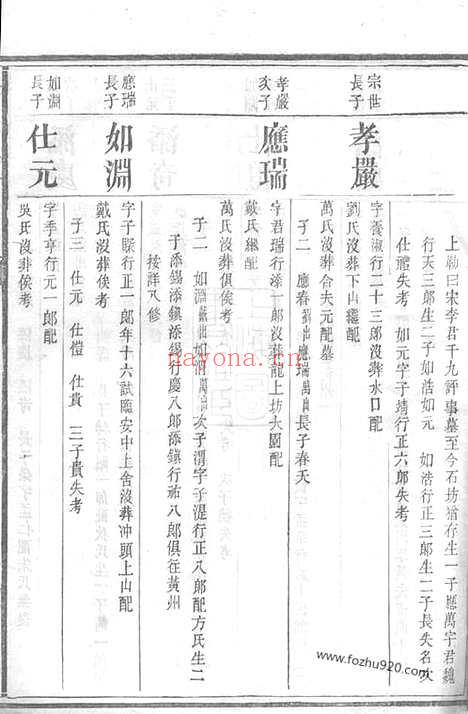 上勒曰宋李君千九評事墓至今石坊猶存生一子應萬字君魏
行天三郎生二子如浩如元 如浩行正三郎生二子長失名次
仕禮失考 如元字子靖行正六郎失考
宗世長子
孝嚴
字養淑行二十三郎沒葬水口配
劉氏沒葬下山繼配
萬氏沒葬合夫元配墓
子二 應春劉出應瑞萬出長子春夭
孝嚴次子
應瑞
字君瑞行添一郎沒葬龍上坊大園配
戴氏繼配
萬氏沒葬俱俟考
子二 如淵戴出如渭萬出次子渭字子湜行正八郎配方氏生二
子添錫添鎮添錫行慶八郎添鎮行祐八郎俱在黃州
按詳八修
應瑞長子
如淵
字子賝行正一郎年十六試臨安中上舍沒葬冲頭上山配
戴氏沒葬俟考
子三 仕元 仕愷 仕貴 三子貴失考
如淵長子
仕元
字季亨行元一郎配
吳氏沒葬俟考
nayona.cn
www.fozhu920.com